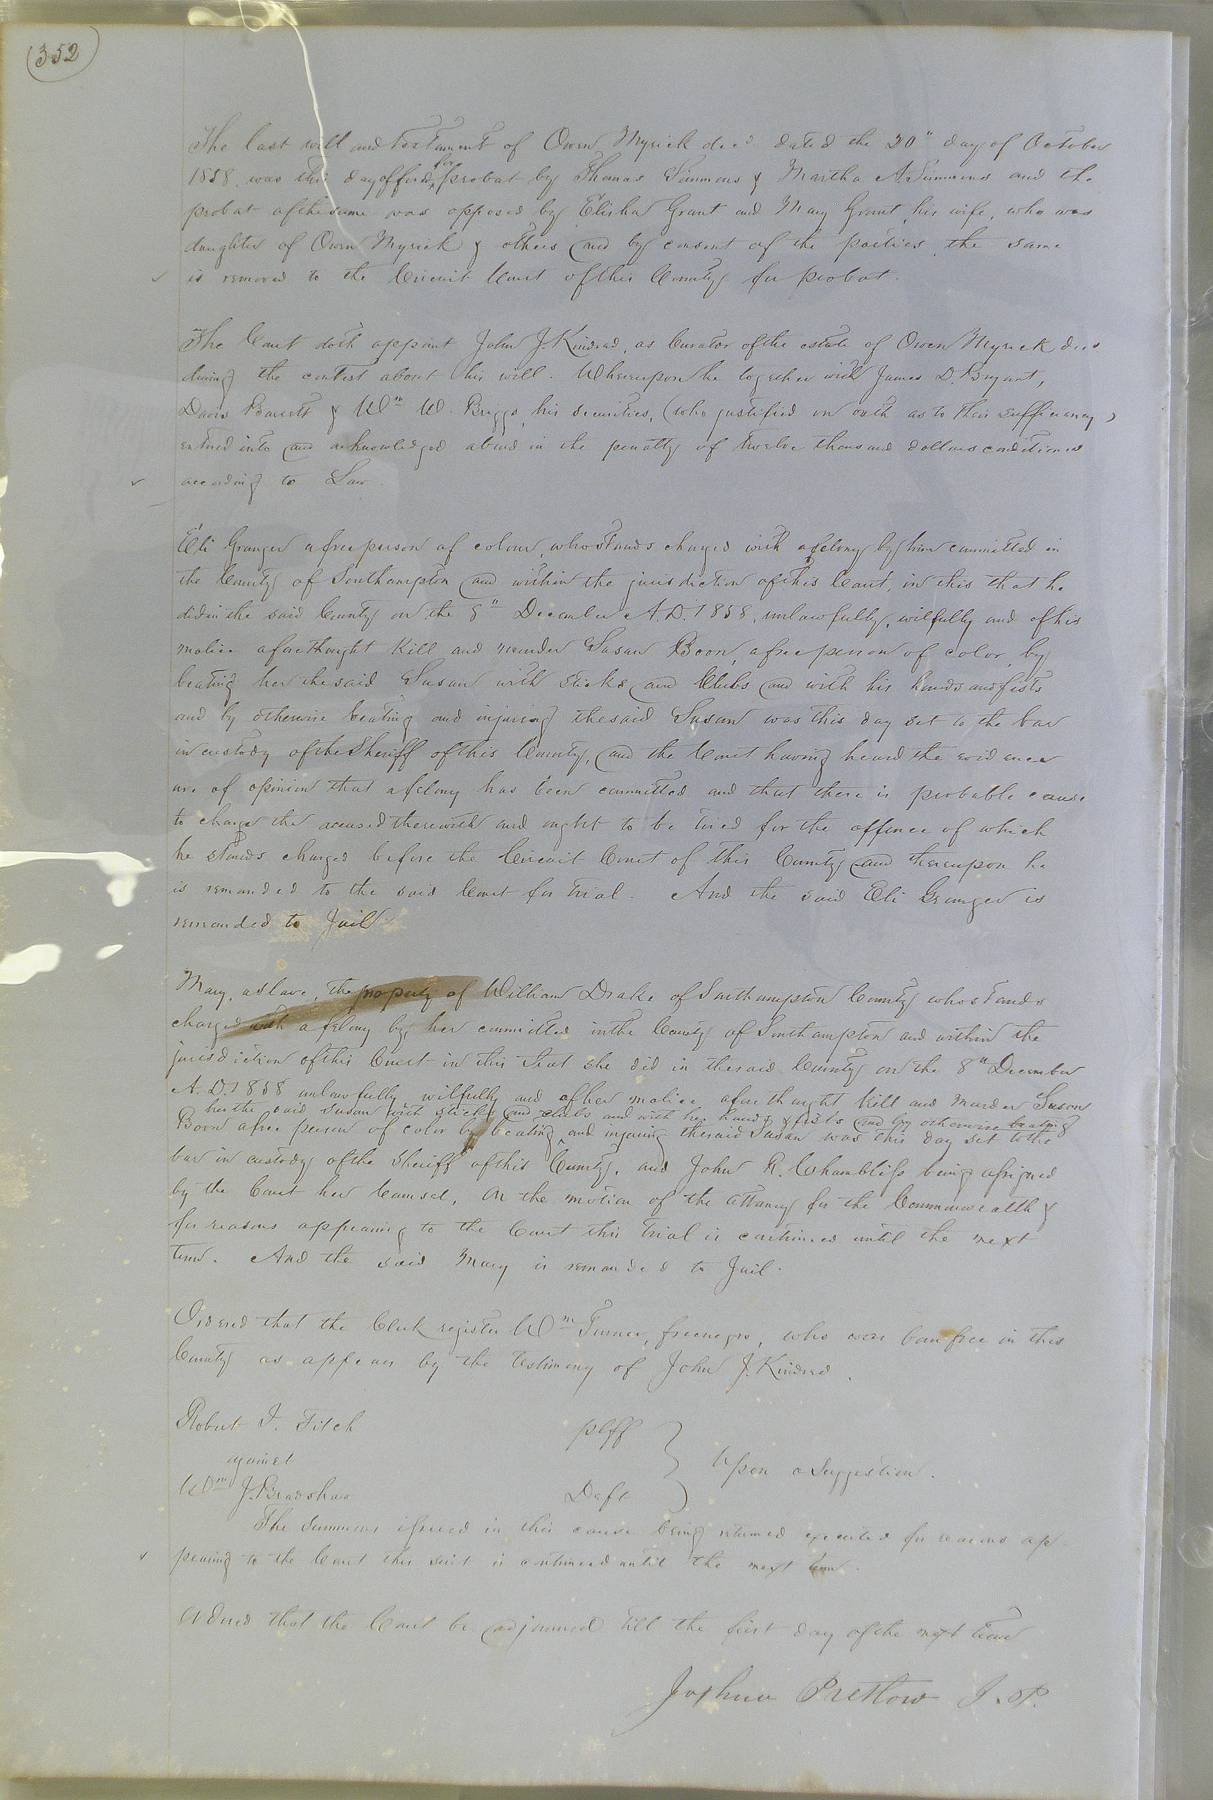 (352)
The last will and testament of Owen Myrick decd dated the 20" day of October
1858 was this day offered for probat by Thomas Simmons & Martha A. Simmons and the
probat of the same was opposed by Elisha Grant and Mary Grant his wife, who was
daughter of Owen Myrick & others and by consent of the parties, the same
is removed to the Circuit Court of this County for probat.
The Court doth appoint John J. Kindred, as Curator of the estate of Owen Myrick decd
during the contest about his will. Whereupon he together with James D. Bryant,
Davis Barrett & Wm W. Briggs, his securities, (who justified on oath as to their sufficiency)
entered into and acknowledged a bond in the penalty of twelve thousand dollars conditioned
according to Law.
Eli Granger a free person of colour, who stands charged with a felony by him committed in
the County of Southampton and within the jurisdiction of this Court, in this that he
did in the said County on the 8" December A.D. 1858, unlawfully, wilfully and of his
malice aforethought Kill and murder Susan Boon, a free person of color, by
beating her the said Susan with sticks and Clubs and with his hands and fists
and by otherwise beating and injuring the said Susan was this day set to the bar
in custody of the Sheriff of this County, and the Court having heard the evidence
are of opinion that a felony has been committed and that there is probable cause
to charge the accused therewith and ought to be tried for the offence of which
he stands charged before the Circuit Court of this County and thereupon he
is remanded to the said Court for trial. And the said Eli Granger is
remanded to Jail
Mary, a slave, the property of William Drake of Southampton County who stands
charged with a felony by her committed in the County of Southampton and within the
jurisdiction of this Court in this that she did in the said County on the 8" December
A.D. 1858 unlawfully wilfully and of her malice aforethought Kill and murder Susan
her the said Susan with sticks and clubs and with her hands & fists and by otherwise beating
Boon a free person of color by beating and injuring the said Susan was this day set to the
bar in custody of the Sheriff of this County, and John R. Chambliss being assigned
by the Court her Counsel, On the motion of the attorney for the Commonwealth &
for reasons appearing to the Court this trial is continued until the next
term. And the said Mary is remanded to Jail.
Ordered that the Clerk register Wm Turner, free negro, who was born free in this
County as appears by the testimony of John J. Kindred.
Robert I. Fitch plff
against
Upon a Suggestion.
Wm J. Bradshaw Deft
The Summons issued in this cause being returned executed for reasons ap-
pearing to the Court this suit is continued until the next term.
Ordered that the Court be adjourned till the first day of the next term
Joshua Pretlow J.P.